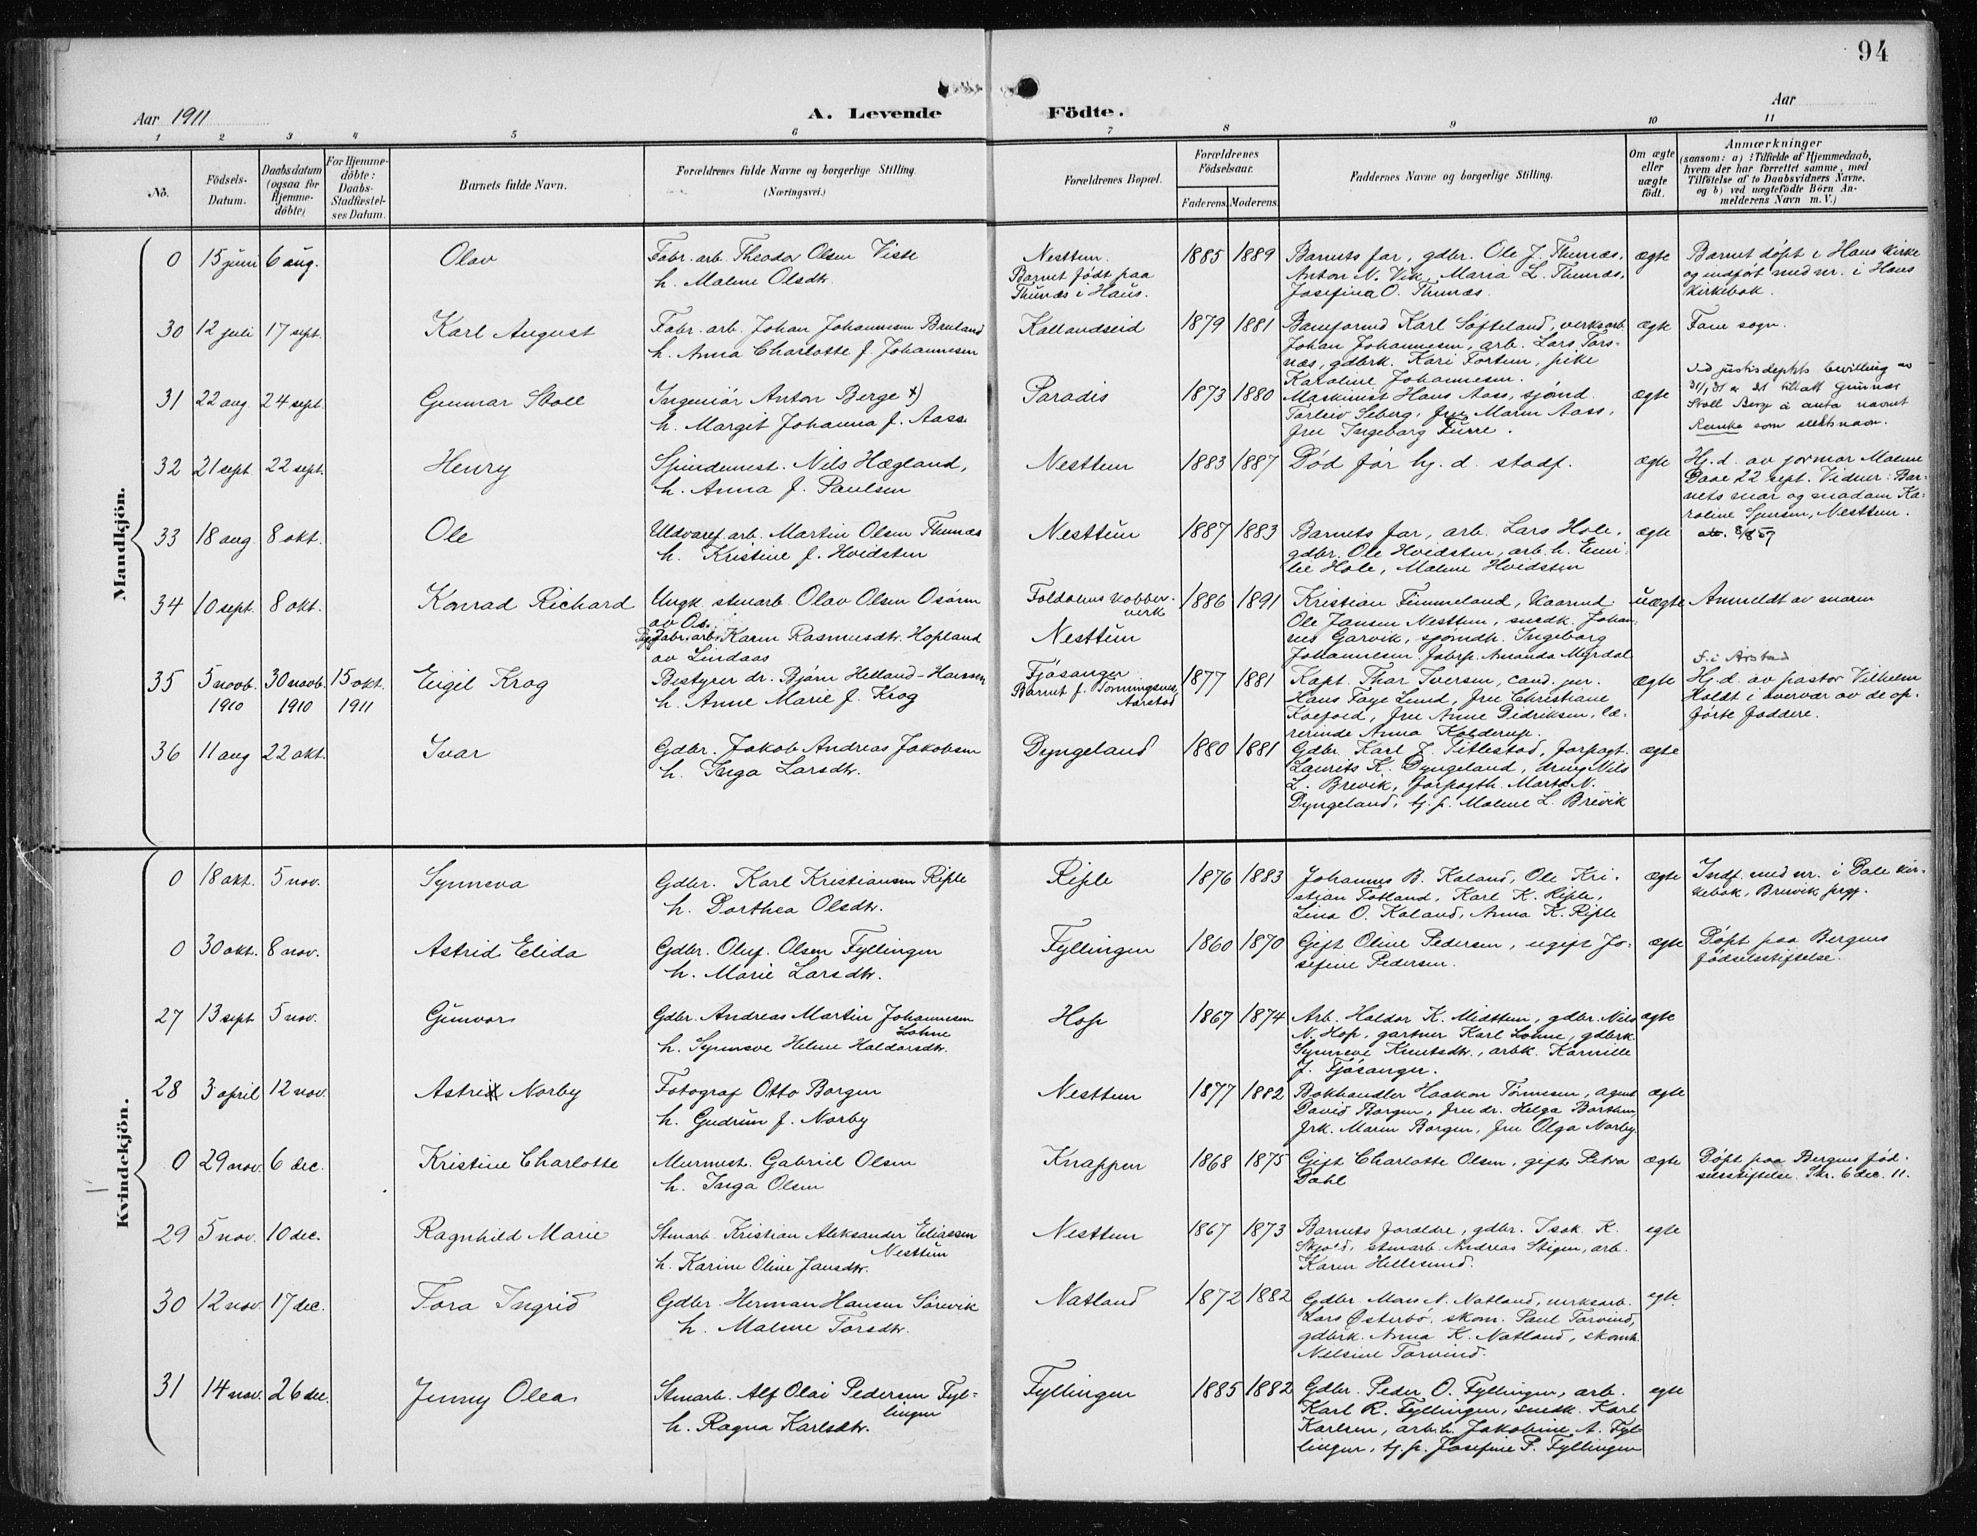 94
Aar 1911
A. Levende
Födte.
Aar
1 2 3 4 5 6 7 8 9 10 11
No.
Födsels-
Datum.
Daabsdatum
(ogsaa for
Hjemme-
döbte)
For Hjemme-
döbte:
Daabs-
Stadfæstel-
ses Datum.
Barnets fulde Navn.
Forældrenes fulde Navne og borgerlige Stilling
(Næringsvei.)
Forældrenes Bopæl.
Forældrenes
Födselsaar.
Faderens. Moderens.
Faddernes Navne og borgerlige Stilling.
Om ægte
eller
uægte
födt.
Anmærkninger
(saasom: a) i Tilfælde af Hjemmedaab,
hvem der har forrettet samme, med
Tilföielse af to Daabsvidners Navne,
og b) ved uægtefödte Börn An-
melderens Navn m. V.)
Mandkjön.
0 15 juni 6 aug. Olav
Fabr. arb. Theodor Olsen Viste
h. Malene Olsdtr.
Nesttun.
Barnet født paa
Thunæs i Haus.
1885 1889
Barnets far, gdbr. Ole J. Thunæs,
Anton N. Vik, Maria L. Thunæs,
Josefina O. Thunæs.
ægte
Barnet döpt i Haus kirke
og indført med nr. i Haus
kirkebok.
30 12 juli 17 sept. Karl August
Fabr. arb. Johan Johannesen Bruland
h. Anna Charlotte f. Johannesen
Kallandseid
1879 1881
Baneformd Karl Søfteland, verksarb.
Johan Johannesen, arb. Lars Tors-
næs, gdbrk. Kari Fortun, pike
Karoline Johannesen.
ægte
Fane sogn.
31 22 aug. 24 sept. Gunnar Stoll
Ingeniör Anton Berge x)
h. Margit Johanna f. Aass
Paradis
1873 1880
Maskinist Hans Aass, sjömd.
Torleiv Seberg, fru Maren Aass,
fru Ingeborg Furre.
ægte
Ved justisdepts bevilling av
31/1 31 er det tillatt Gunnar
Stoll Berge å anta navnet
som slektsnavn.
32 21 sept. 22 sept. Henry
Spindemest. Nils Hægland,
h. Anna f. Paulsen
Nesttun
1883 1887
Död før hj. d. stadf.
ægte
Hj. d. av jormor Malene
22 sept. Vidner: Bar-
nets mor og madam Ka-
roline Nesttun.
33 18 aug. 8 okt. Ole
Uldvaref. arb. Martin Olsen Thunæs
h. Kristine f. Hvidsten
Nesttun
1887 1883
Barnets far, arb. Lars Hole,
gdbr. Ole Hvidsten, arb. h. Emi-
lie Hole, Malene Hvidsten
ægte
34 10 sept. 8 okt. Konrad Richard
Ungk. stenarb. Olav Olsen Osören
av Os.
fabr. arb. Karen Rasmusdtr. Hopland
av Lindaas
Foldalens kobber-
verk
Nesttun
1886 1891
Kristian Fimmeland,
Ole Jansen Nesttun, snedk. Johan-
nes Garvik, Ingeborg
Johannesen, Amanda Myrdal
uægte
Anmeldt av moren
35 5 novb. 1910 30 novb. 1910 15 okt. 1911 Eigil Krog
Bestyrer dr. Bjørn Helland-Hansen
h. Anne Marie f. Krog
Fjösanger
Barnet f. Aarstad
1877 1881
Kapt. Thor Iversen, cand. jur.
Hans Faye Lund, fru Christiane
Koefoed, fru Anne Didriksen, læ-
rerinde Anna Kolderup.
ægte
F. i Årstad
Hj. d. av pastor Vilhelm
Koldt i overvær av de op-
førte faddere.
36 11 aug. 22 okt. Ivar
Gdbr. Jakob Andreas Jakobsen
h. Inga Larsdtr.
Dyngeland
1880 1881
Gdbr. Karl J. Titlestad, forpagt.
Laurits K. Dyngeland, dreng Nils
L. Brevik, forpagth. Marta N.
Dyngeland, tj. p. Malene L. Brevik
ægte
Kvindekjön.
0 18 okt. 5 nov. Synneva
Gdbr. Karl Kristiansen Riple
h. Dorthea Olsdtr.
Riple
1876 1883
Johannes B. Kaland, Ole Kri-
stian Totland, Karl K. Riple,
Lina O. Kaland, Anna K. Riple
ægte
Indf. med nr. i Dale kir-
kebok, Bruvik prgj.
0 30 okt. 8 nov. Astrid Elida
Gdbr. Oluf Olsen Fyllingen
h. Marie Larsdtr.
Fyllingen
1860 1870
Gift Oline Pedersen, ugift Jo-
sefine Pedersen.
ægte
Döpt paa Bergens
födselsstiftelse.
27 13 sept 5 nov. Gunvor
Gdbr. Andreas Martin Johannesen
Lohne
h. Synneve Helene Haldorsdtr.
Hop
1867 1874
Arb. Haldor K. Midttun, gdbr. Nils
N. Hop, gartner Karl Lohne, gdbrk.
Synneve Knutsdtr., arbk. Kamille
J. Fjösanger.
ægte
28 3 april 12 nov. Astrid Norby
Fotograf Otto Borgen
h. Gudrun f. Norby
Nesttun
1877 1882
Bokhandler Haakon Tönnesen, agent
David Borgen, fru dr. Helga Barthen,
frk. Maren Borgen, fru Olga Norby.
ægte
0 29 nov. 6 dec. Kristine Charlotte
Murmest. Gabriel Olsen
h. Inga Olsen
Knappen
1868 1875
Gift Charlotte Olsen, gift Petra
Dahl
ægte
Döpt paa Bergens föd-
selsstiftelse. Skr. 6 dec. 11.
29 5 nov. 10 dec. Ragnhild Marie
Stenarb. Kristian Aleksander Eliassen
Nesttun
h. Karine Oline Jansdtr.
Nesttun
1867 1873
Barnets foreldre, gdbr. Isak K.
Skjold, stenarb. Andreas Stigen, arb.
Karen Hellesund.
egte
30 12 nov. 17 dec. Tora Ingrid
Gdbr. Herman Hansen Sörevik
h. Malene Torsdtr.
Natland
1872 1882
Gdbr. Mons N. Natland, verksarb.
Lars Østerbö, skom. Paul Torvind,
gdbrk. Anna K. Natland, skomk.
Nelsine Torvind.
egte
31 14 nov. 26 dec. Jenny Olea
Stenarb. Alf Olai Pedersen Fyl-
lingen
h. Ragna Karlsdtr.
Fyllingen
1885 1882
Gdbr. Peder O. Fyllingen, arb.
Karl R. Fyllingen, snedk. Karl
Karlsen, arb. h. Jakobine A. Fyl-
lingen, tj. p. Josefine P. Fyllingen
egte